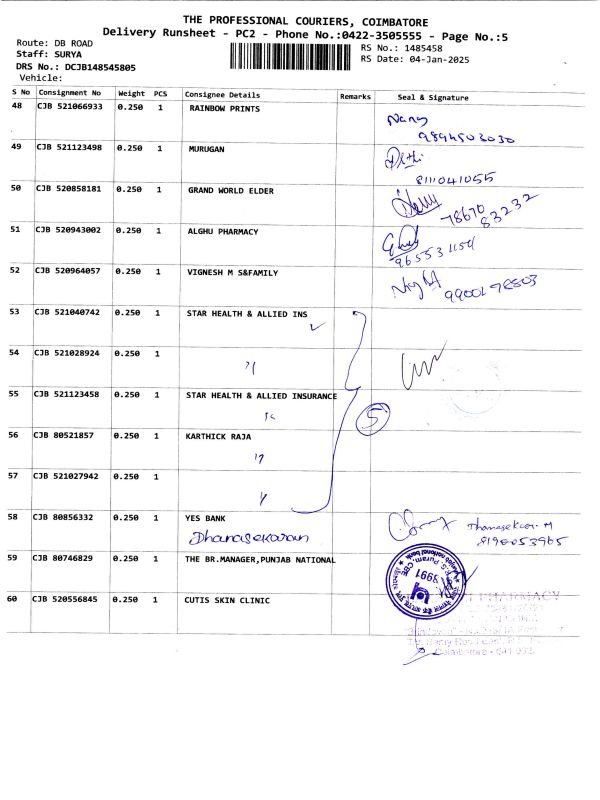 THE PROFESSIONAL COURIERS, COIMBATORE
Delivery Runsheet - PC2 - Phone No.:0422-3505555 - Page No.:5
Route: DB ROAD
Staff: SURYA
DRS No.: DCJB148545805
Vehicle:
RS No.: 1485458
RS Date: 04-Jan-2025
S No Consignment No Weight PCS Consignee Details Remarks Seal & Signature
48 CJB 521066933 0.250 1 RAINBOW PRINTS
9894503030
49 CJB 521123498 0.250 1 MURUGAN
8111041055
50 CJB 520858181 0.250 1 GRAND WORLD ELDER
78670 83232
51 CJB 520943002 0.250 1 ALGHU PHARMACY
52 CJB 520964057 0.250 1 VIGNESH M S&FAMILY
53 CJB 521040742 0.250 1 STAR HEALTH & ALLIED INS
54 CJB 521028924 0.250 1
55 CJB 521123458 0.250 1 STAR HEALTH & ALLIED INSURANCE
5
56 CJB 80521857 0.250 1 KARTHICK RAJA
57 CJB 521027942 0.250 1
58 CJB 80856332 0.250 1 YES BANK
Dhanasekaran
8190053965
59 CJB 80746829 0.250 1 THE BR.MANAGER,PUNJAB NATIONAL
3991
60 CJB 520556845 0.250 1 CUTIS SKIN CLINIC
PHARMACY
Coimbatore - 641 002.